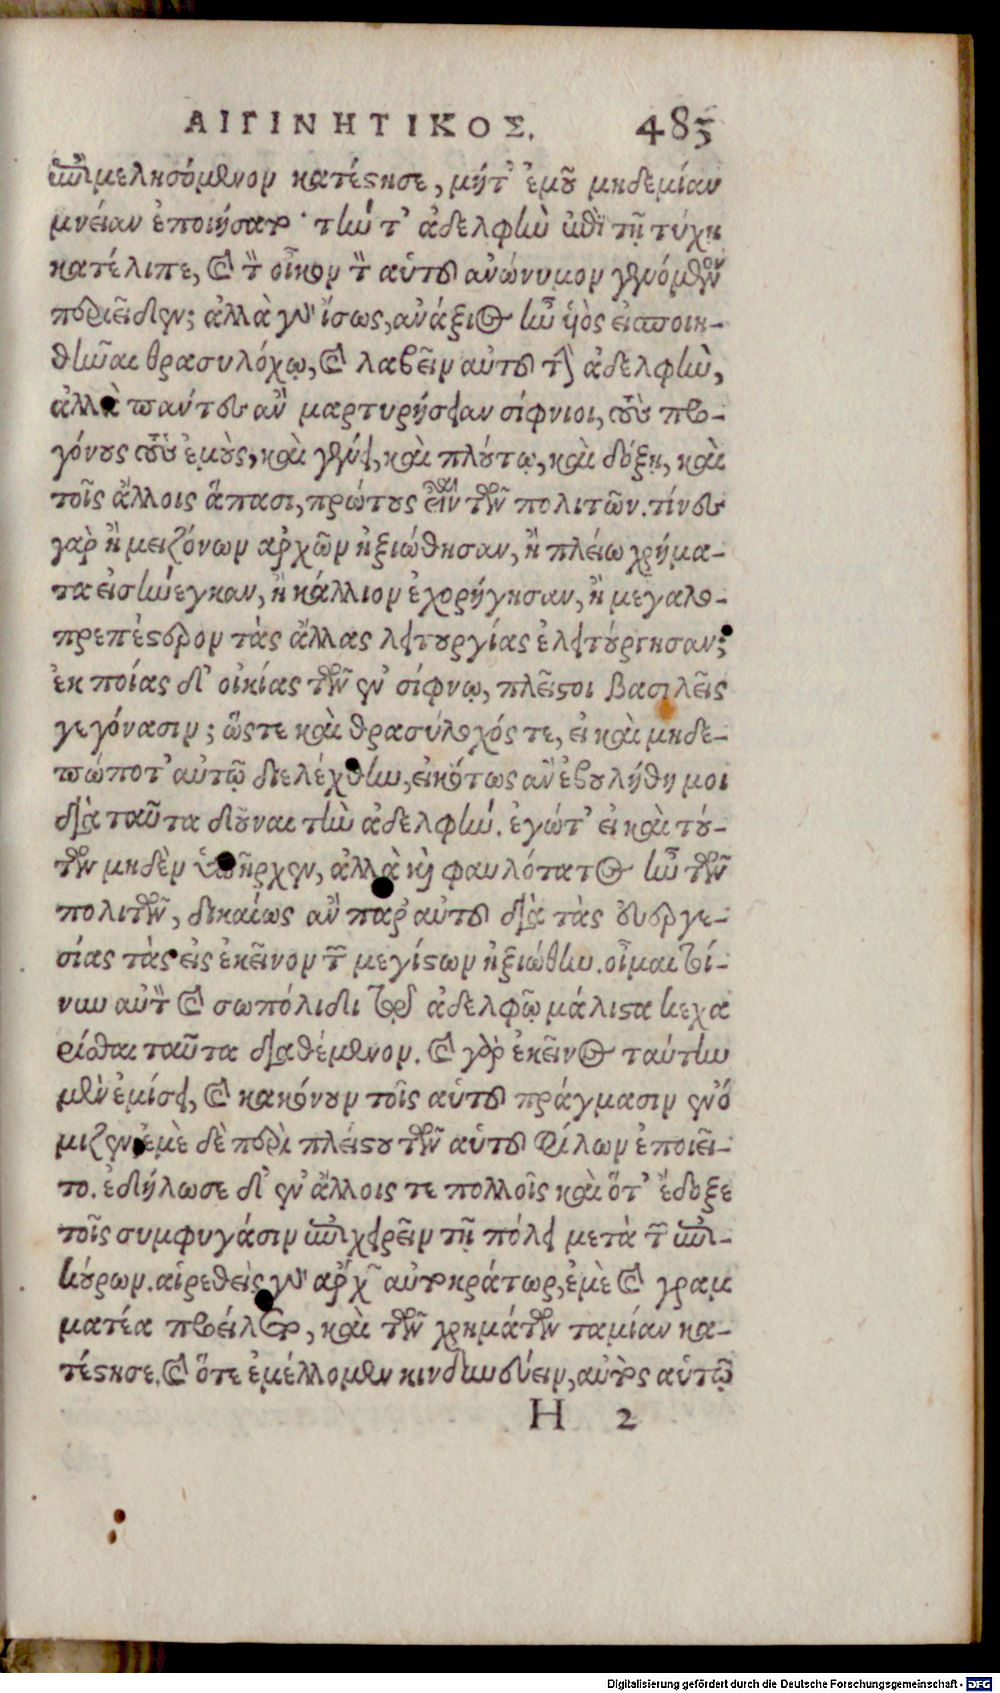 ΑΙΓΙΝΗΤΙΚΟΣ. 485
ἐπιμελησόμενον κατέστησε, μήτ' ἐμοῦ μηδεμίαν
μνείαν ἐποιήσατο· τὴν τ' ἀδελφὴν ἐπὶ τῇ τύχῃ
κατέλιπε, καὶ τὸν οἶκον τὸν αὑτοῦ ἀνώνυμον γενόμενον
περιεῖδεν; ἀλλὰ νὴ ἴσως, ἀνάξιος ἦν ὑὸς εἰσποιη-
θῆναι θρασυλόχῳ, καὶ λαβεῖν αὐτοῦ τὴν ἀδελφὴν,
ἀλλὰ πάντες ἂν μαρτυρήσειαν σίφνιοι, τοὺς προ-
γόνους τοὺς ἐμοὺς, καὶ γένει, καὶ πλούτῳ, καὶ δόξῃ, καὶ
τοῖς ἄλλοις ἅπασι, πρώτους εἶναι τῶν πολιτῶν. τίνες
γὰρ ἢ μειζόνων ἀρχῶν ἠξιώθησαν, ἢ πλείω χρήμα-
τα εἰσήνεγκαν, ἢ κάλλιον ἐχορήγησαν, ἢ μεγαλο-
πρεπέστερον τὰς ἄλλας λειτουργίας ἐλειτούργησαν;
ἐκ ποίας δ' οἰκίας τῶν ἐν σίφνῳ, πλεῖστοι βασιλεῖς
γεγόνασιν; ὥστε καὶ θρασύλοχός τε, εἰ καὶ μηδε-
πώποτ' αὐτῷ διελέχθην, εἰκότως ἂν ἐβουλήθη μοι
διὰ ταῦτα δοῦναι τὴν ἀδελφήν. ἐγώ τ' εἰ καὶ τού-
των μηδὲν ὑπῆρχεν, ἀλλὰ καὶ φαυλότατος ἦν τῶν
πολιτῶν, δικαίως ἂν παρ' αὐτοῦ διὰ τὰς εὐεργε-
σίας τὰς εἰς ἐκεῖνον τῶν μεγίστων ἠξιώθην. οἶμαι τοί-
νυν αὐτὸν καὶ σωπόλιδι τῷ ἀδελφῷ μάλιστα κεχα
ρίσθαι ταῦτα διαθέμενον. καὶ γὰρ ἐκεῖνος ταύτην
μὲν ἐμίσει, καὶ κακόνουν τοῖς αὑτοῦ πράγμασιν ἐνό
μιζεν, ἐμὲ δὲ περὶ πλείστου τῶν αὑτοῦ φίλων ἐποιεῖ-
το. ἐδήλωσε δ' ἐν ἄλλοις τε πολλοῖς καὶ ὅτ' ἔδοξε
τοῖς συμφυγάσιν ἐπιχειρεῖν τῇ πόλει μετὰ τῶν ἐπι-
κούρων. αἱρεθεὶς γὰρ ἄρχειν αὐτοκράτωρ, ἐμὲ καὶ γραμ
ματέα προείλετο, καὶ τῶν χρημάτων ταμίαν κα-
τέστησε. καὶ ὅτε ἐμέλλομεν κινδυνεύειν, αὐτὸς αὑτῷ
H 2
Digitalisierung gefördert durch die Deutsche Forschungsgemeinschaft - DFG